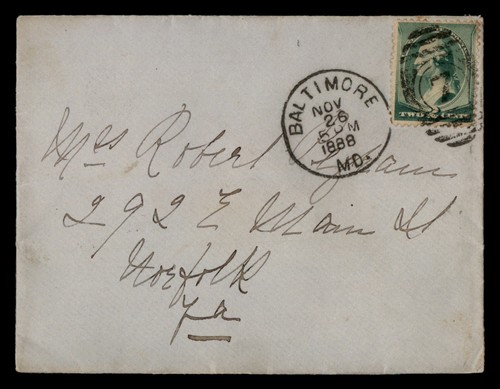 BALTIMORE
NOV
26
5 PM
1888
MD.
TWO CENTS
Mrs Robert
292 E Main St
Norfolk
Va